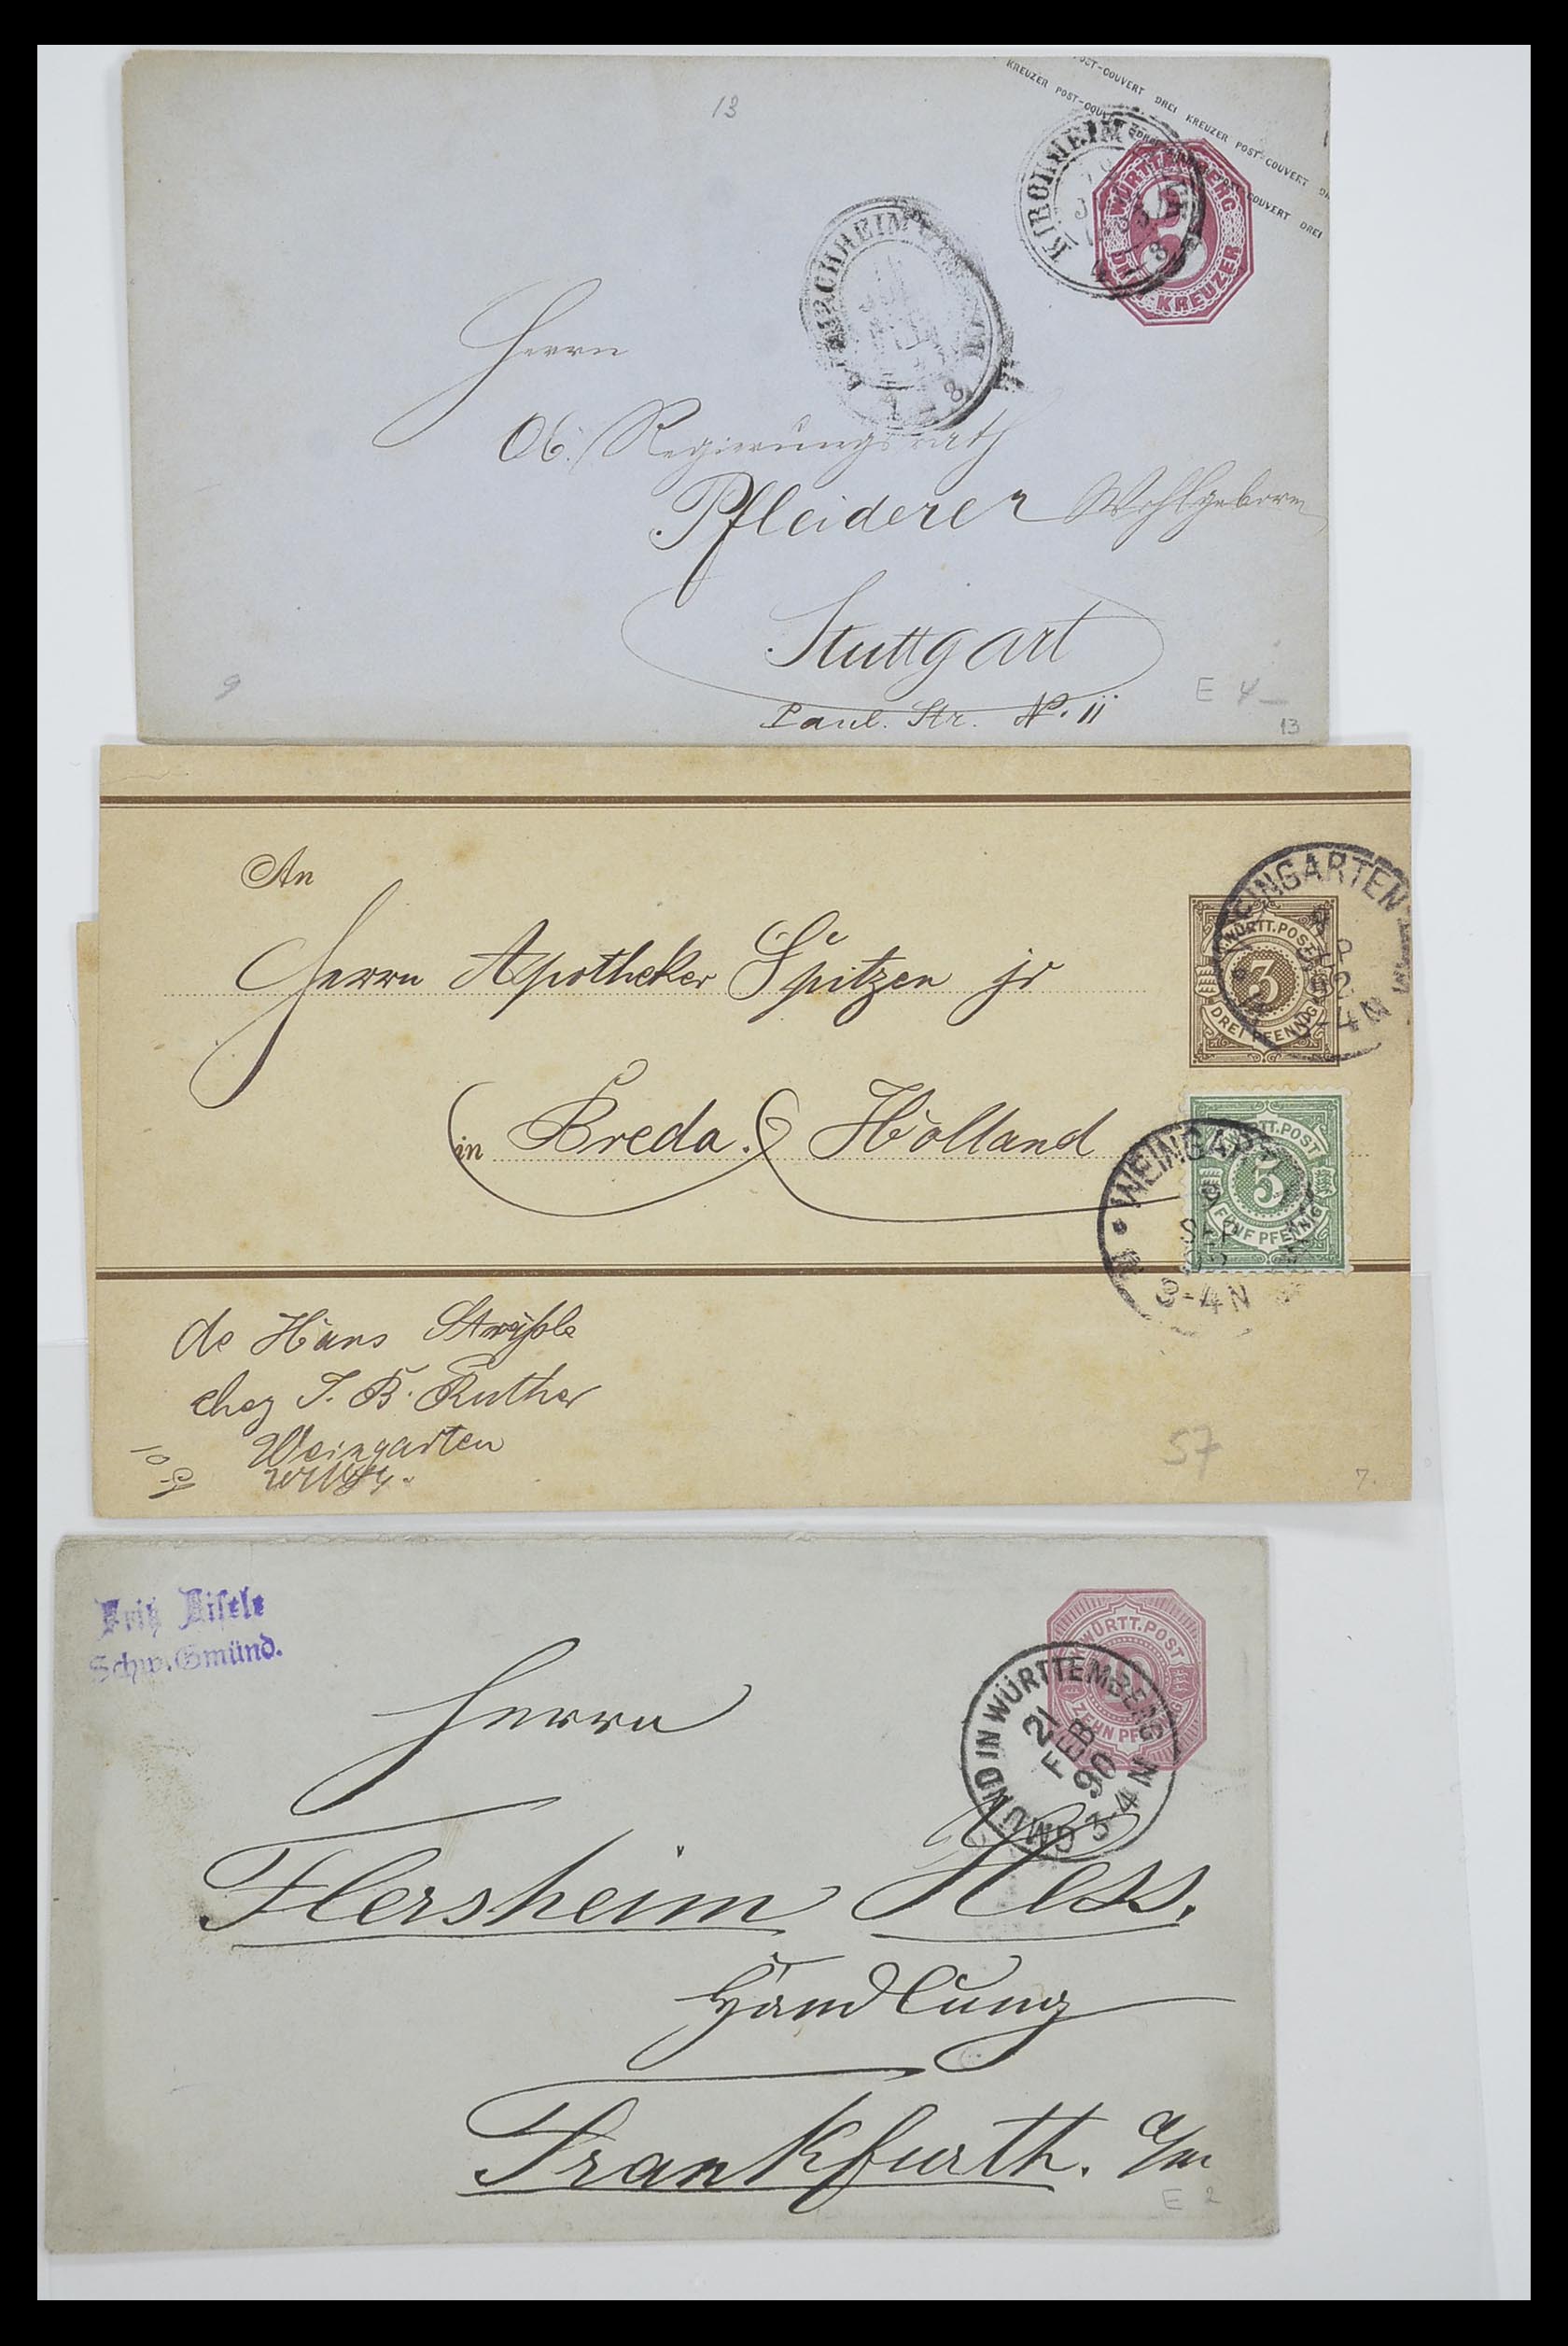 POST-COUVERT DREI KREUZER POST-COUVERT
KREUZER POST-COUVERT DREI
COUVERT DREI
13
KIRCHHEIM
4-8
WÜRTTEMBERG
3
DREI KREUZER
KIRCHHEIM
Herrn
Ob. Regierungsrath
Pfleiderer Wohlgeboren
Stuttgart
Paul. Str. No. 11
9
E 4
13
An
WEINGARTEN
92
3-4N
WÜRTT. POST
3
DREI PFENNIG
Herrn Apotheker Spitzen jr
in Breda. Holland
WEINGARTEN
SEP
3-4N
WÜRTT. POST
5
FÜNF PFENNIG
de Hans
chez J. B. Ruther
Weingarten
10
57
7.
Fritz Aisele
Schw. Gmünd.
K. WÜRTT. POST
10
ZEHN PFENNIG
GMÜND IN WÜRTTEMBERG
21
FEB
90
3-4 N
Herrn
Flersheim Hess.
Handlung
Frankfurth. a/m
E 2